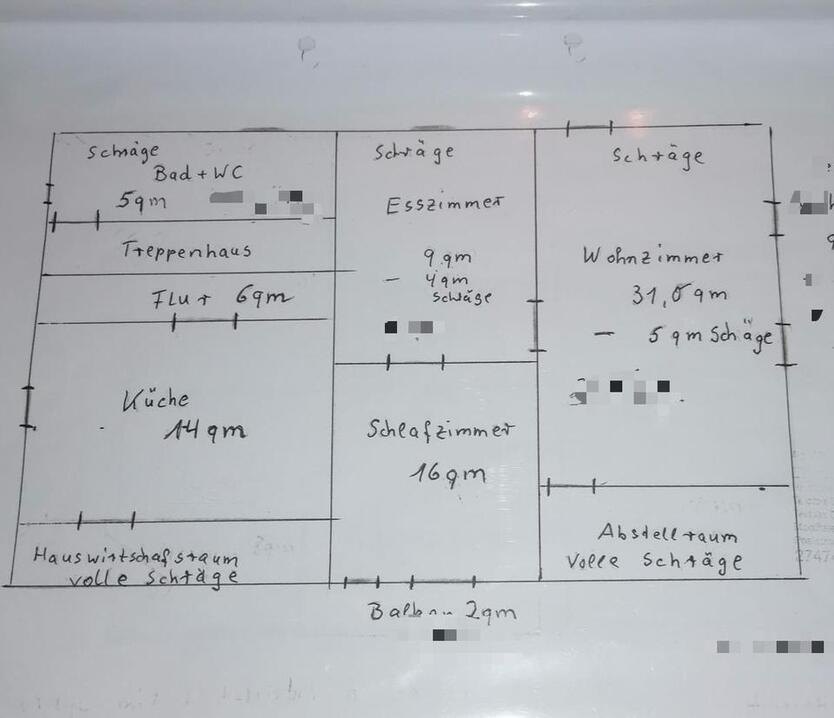 Schräge
Bad + WC
5qm
Treppenhaus
Flur 6qm
Küche
14qm
Hauswirtschafsraum
volle Schräge
Schräge
Esszimmer
9qm
- 4qm
Schräge
Schlafzimmer
16qm
Balkon 2qm
Schräge
Wohnzimmer
qm
- 5qm Schäge
Abstellraum
Volle Schräge